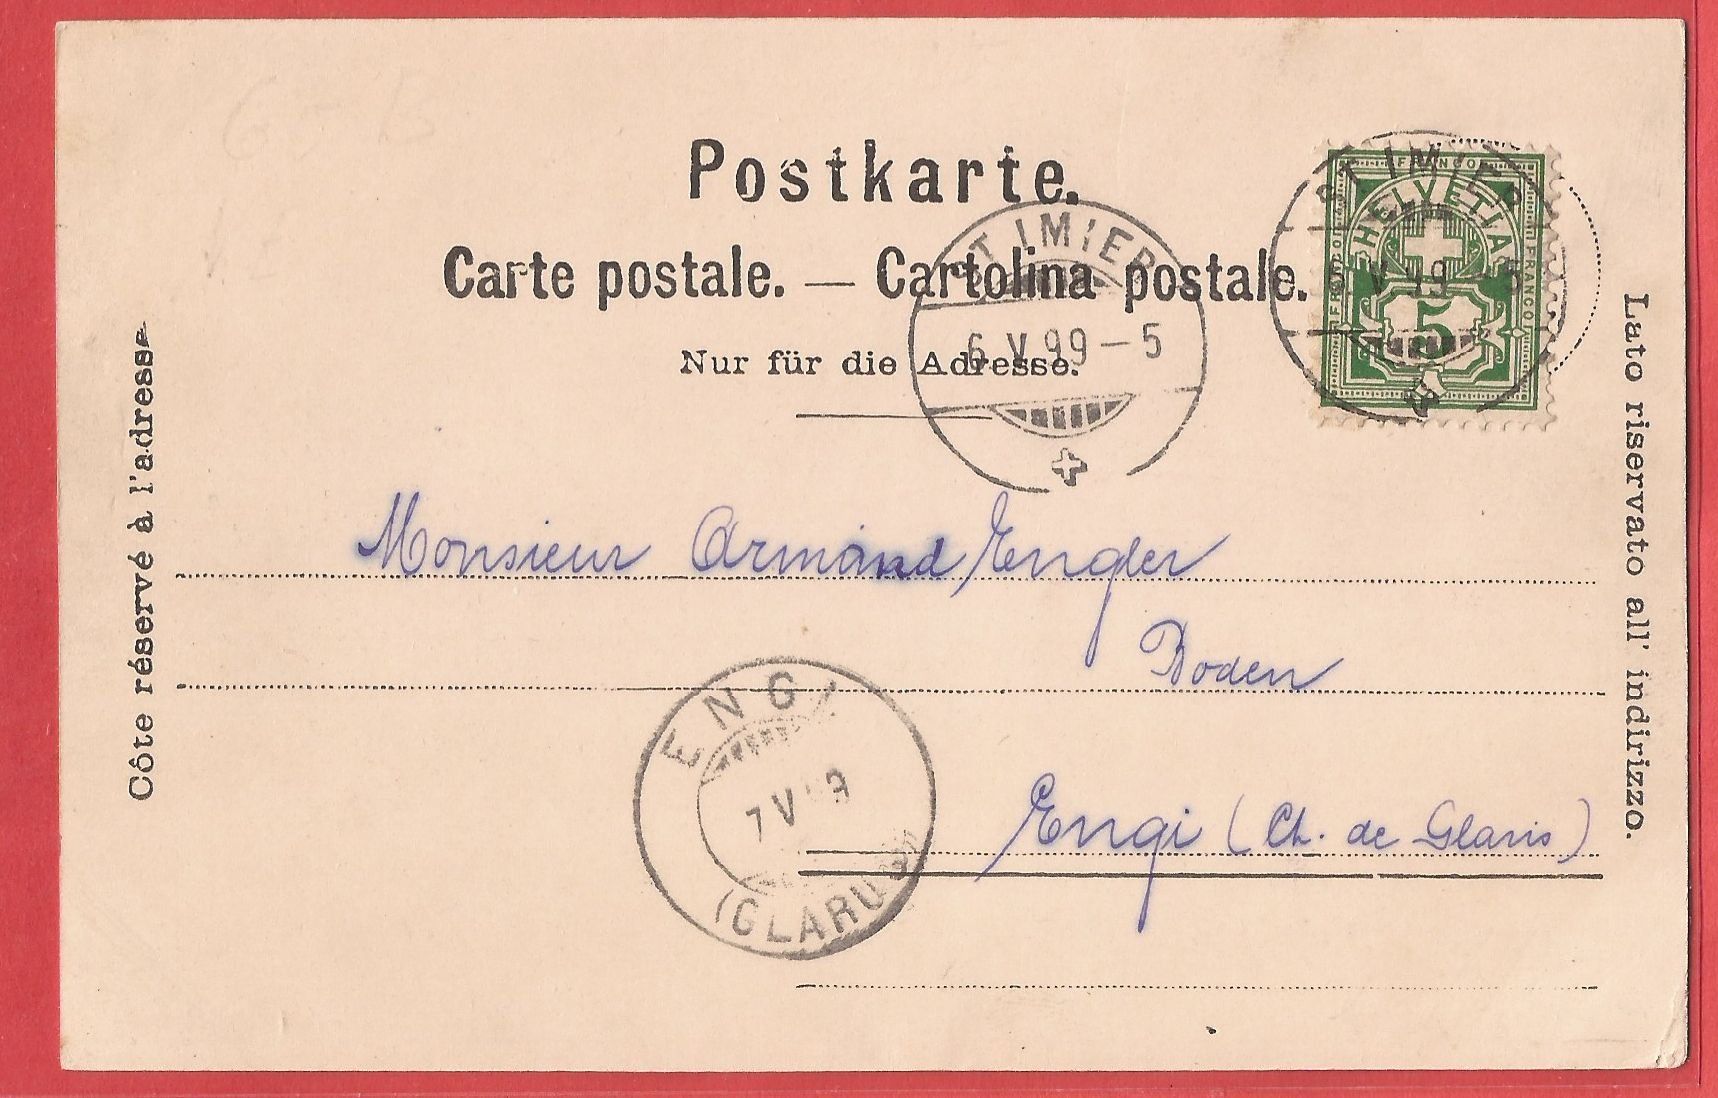 Postkarte.
Carte postale. — Cartolina postale.
Nur für die Adresse.
Côte réservé à l'adresse
Lato riservato all' indirizzo.
ST IMIER
6 V 99 – 5
ST IMIER
6 V 99 – 5
FRANCO
HELVETIA
FRANCO
FRANCO
5
Monsieur Armand Engler
Boden
Engi (Ct. de Glaris)
ENGI
7 V 99
(GLARUS)